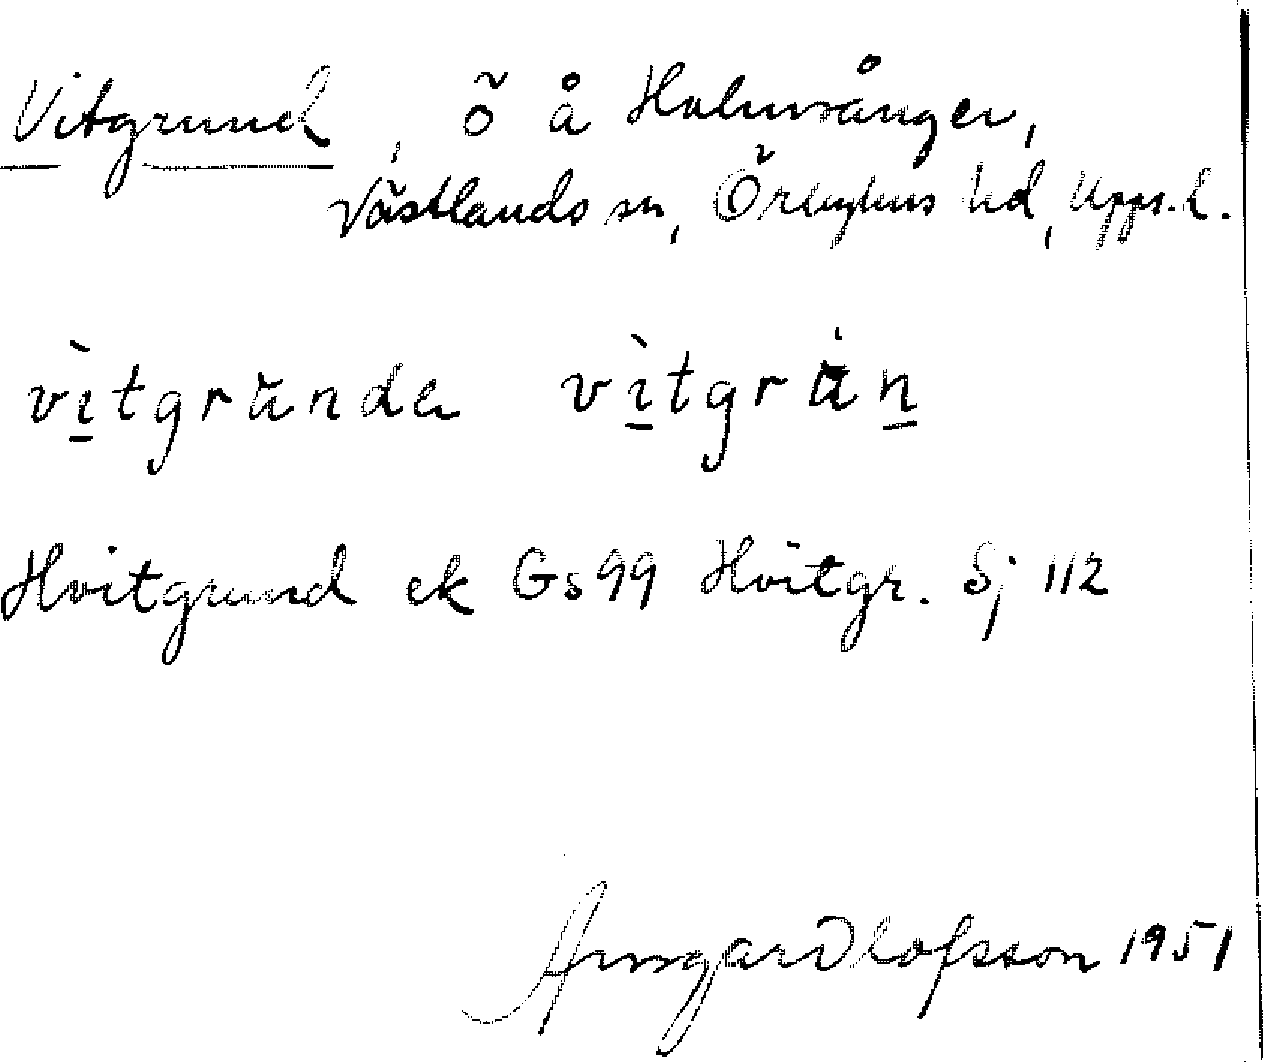 Vitgrund, ö å Holmsånger,
Västlands sn, Örbyhus hd, Upps. l.
vì̱tgrŭnda vì̱tgrŭ̀ṉ
Hvitgrund ek Gs 99 Hvitgr. Sj 112
Olofsson 1951